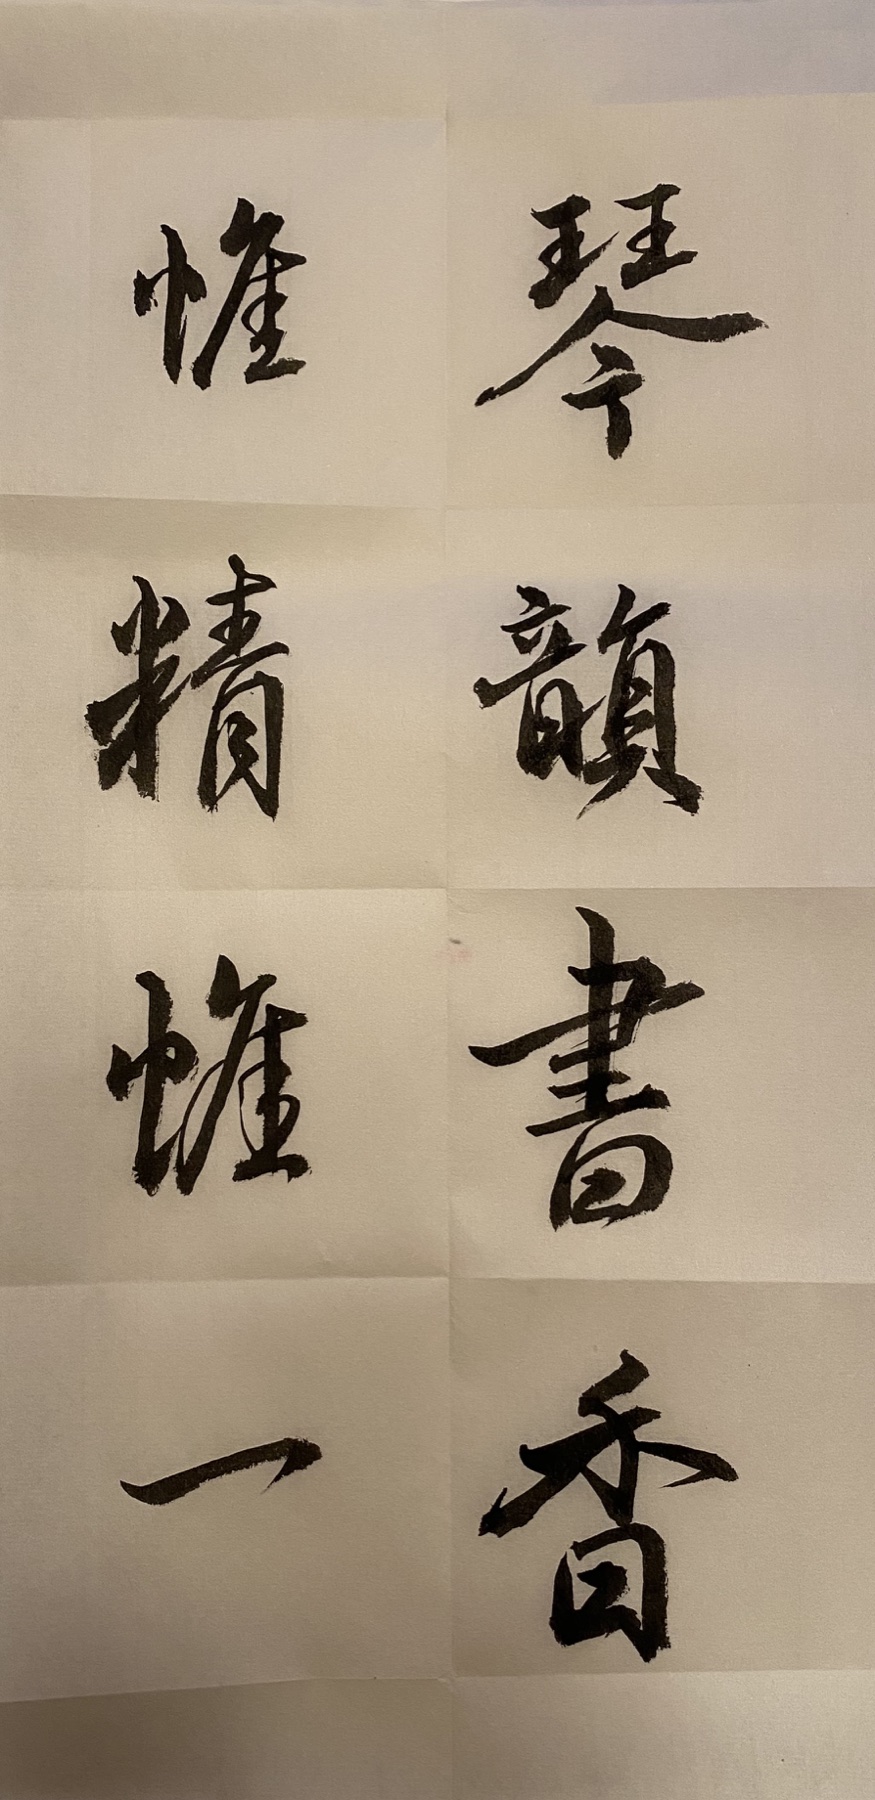 琴韻書香
惟精惟一